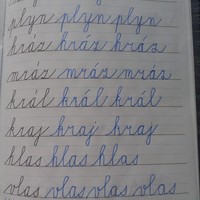 plyn plyn plyn
hráz hráz hráz
mráz mráz mráz
král král král
kraj kraj kraj
hlas hlas hlas
vlas vlas vlas vlas